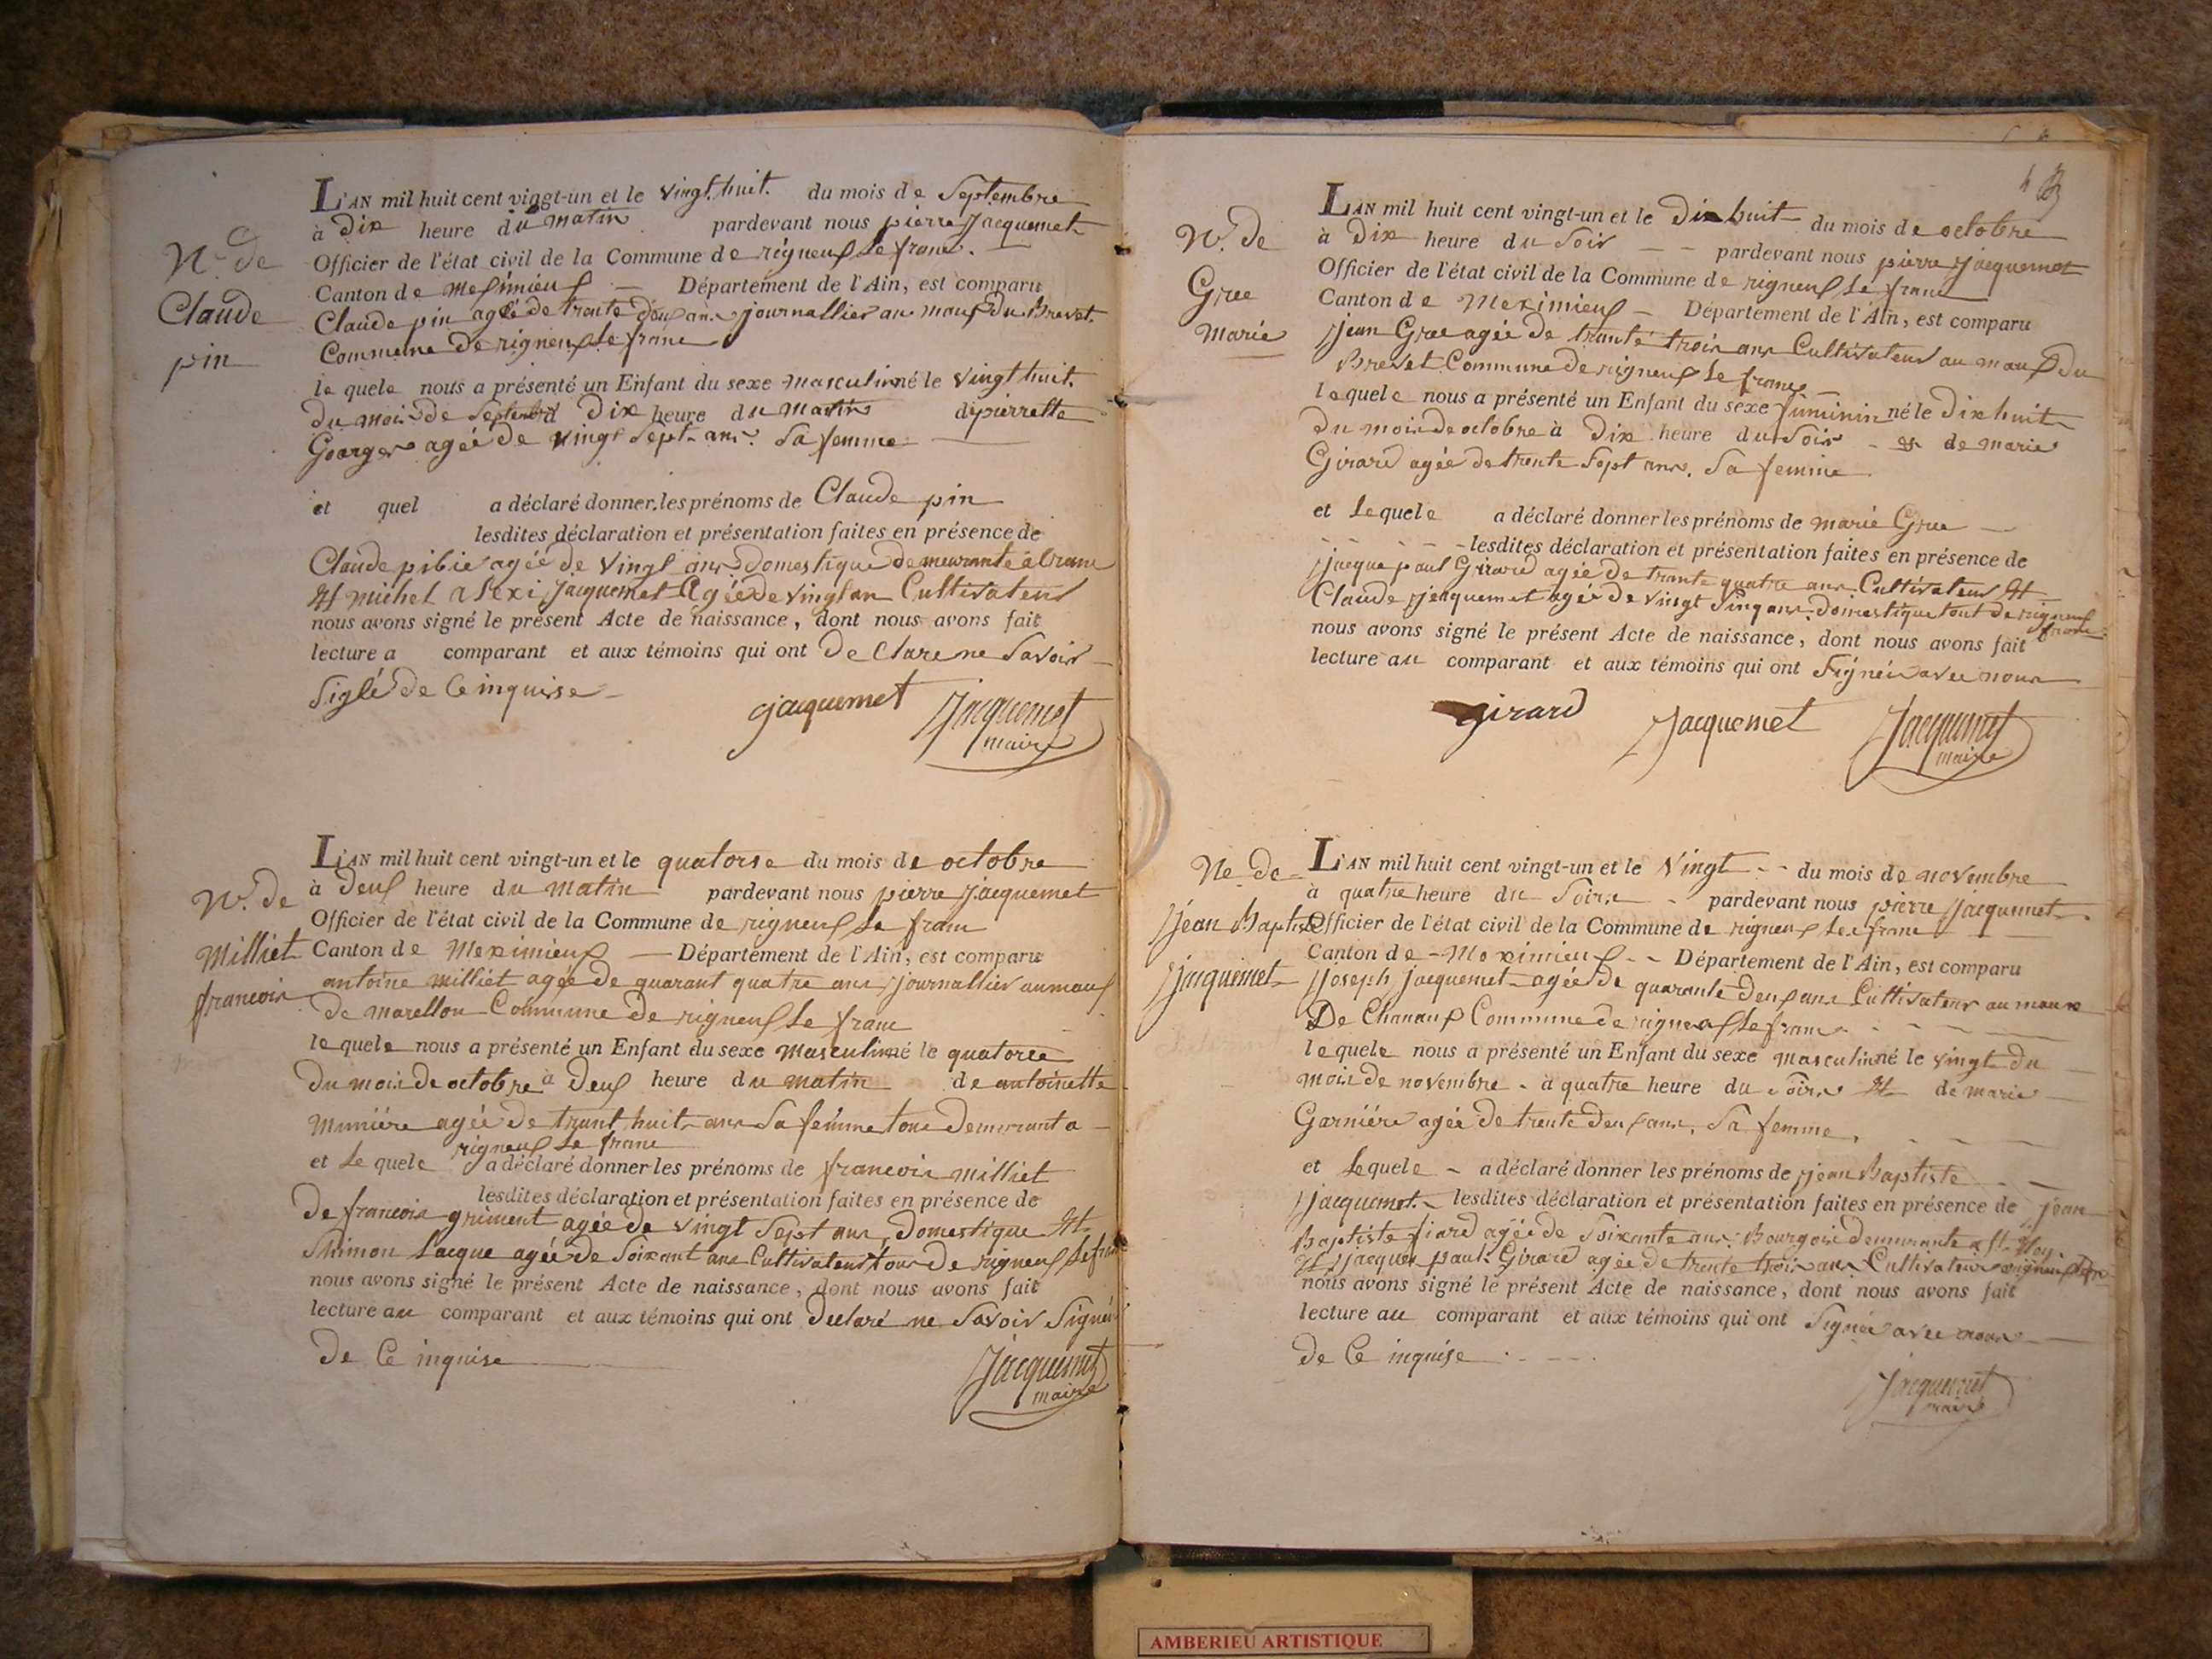 N.ce de
Claude
pin
L'AN mil huit cent vingt-un et le vingt huit. du mois de Septembre
à Dix heure du matin pardevant nous pierre Jacquemet
Officier de l'état civil de la Commune de rigneux Le franc.
Canton de Meximieux — Département de l'Ain, est comparu
Claude pin agée de trante deux ans journallier au maux du Brevet
Commune De rigneux Le franc
le quele nous a présenté un Enfant du sexe masculin né le vingt huit.
Du mois de Septembre à Dix heure du matin de pierrette
Goarger agée de vingt Sept ans. Sa femme
et quel a déclaré donner les prénoms de Claude pin
lesdites déclaration et présentation faites en présence de
Claude pibie agée de vingt ans Domestique Demeurante à
Et michel alexi Jacquemet Agée de vingt an Cultivateur
nous avons signé le présent Acte de naissance, dont nous avons fait
lecture a comparant et aux témoins qui ont De Clare ne Savoir
Siglé de Ce inquise
Jacquemet Jacquemet
maire
N.ce de
Milliet
francois
L'AN mil huit cent vingt-un et le quatorse du mois de octobre
à Deux heure du matin pardevant nous pierre Jacquemet
Officier de l'état civil de la Commune de rigneux Le franc
Canton de Meximieux — Département de l'Ain, est comparu
antoine milliet agée de quarant quatre ans journallier au maux
De marellon Commune De rigneux Le franc
le quele nous a présenté un Enfant du sexe masculin né le quatorce
Du mois de octobre à Deux heure du matin de antoinette
muniére agée de trant huit ans Sa femme tous Demurant a
rigneux Le franc
et Le quele a déclaré donner les prénoms de francois milliet
lesdites déclaration et présentation faites en présence de
De francois griment agée de vingt Sept ans, Domestique Et
Shimon Lacque agée de Soixant ans Cultivateur tous De rigneux Le franc
nous avons signé le présent Acte de naissance, dont nous avons fait
lecture au comparant et aux témoins qui ont Declaré ne Savoir Signé
De Ce inquise
Jacquemet
maire
N.ce de
Grue
Marie
L'AN mil huit cent vingt-un et le Dix huit du mois de octobre
à Dix heure du Soir — — pardevant nous pierre Jacquemet
Officier de l'état civil de la Commune de rigneux Le franc
Canton de Meximieux — Département de l'Ain, est comparu
jean Grue agée de tranté trois ans Cultivateur au maux Du
Brevet Commune De rigneux Le franc
le quele nous a présenté un Enfant du sexe füminin né le Dix huit
Du mois de octobre à Dix heure du Soir - de marie
Girard agée de trente Sept ans. Sa femme
et Le quele a déclaré donner les prénoms de marie Grue —
lesdites déclaration et présentation faites en présence de
jacque paul Girard agée de trante quatre ans Cultivateur Et
Claude jacquemet agée de vingt Sinq ans Domestique tout De rigneux
franc
nous avons signé le présent Acte de naissance, dont nous avons fait
lecture au comparant et aux témoins qui ont Signéé avec nous
girard Jacquemet Jacquemet
maire
Ne de
jean Baptiste
jaquemet
L'AN mil huit cent vingt-un et le Vingt - - du mois de novembre
à quatre heure du Soire - pardevant nous pierre Jacquemet
Officier de l'état civil de la Commune de rigneux Le franc
Canton de - Meximieux - - Département de l'Ain, est comparu
joseph jacquemet agée de quarante Deux ans Cultivateur au maux
De Chanaux Commune de rigneux Le franc
le quele nous a présenté un Enfant du sexe masculin né le vingt du
mois de novembre - à quatre heure du Soire Et de marie
Garniére agée De trente Deux ans, Sa femme,
et Le quele - a déclaré donner les prénoms de jean Baptiste
jacquemet. lesdites déclaration et présentation faites en présence de jean
Baptiste fiard agée de Soixante ans Bourgois Demurante a St.
Et jacques paul Girard agée de trente trois ans Cultivateur
nous avons signé le présent Acte de naissance, dont nous avons fait
lecture au comparant et aux témoins qui ont Signée avec nous
de Ce inquise
Jacquemet
maire
AMBERIEU ARTISTIQUE